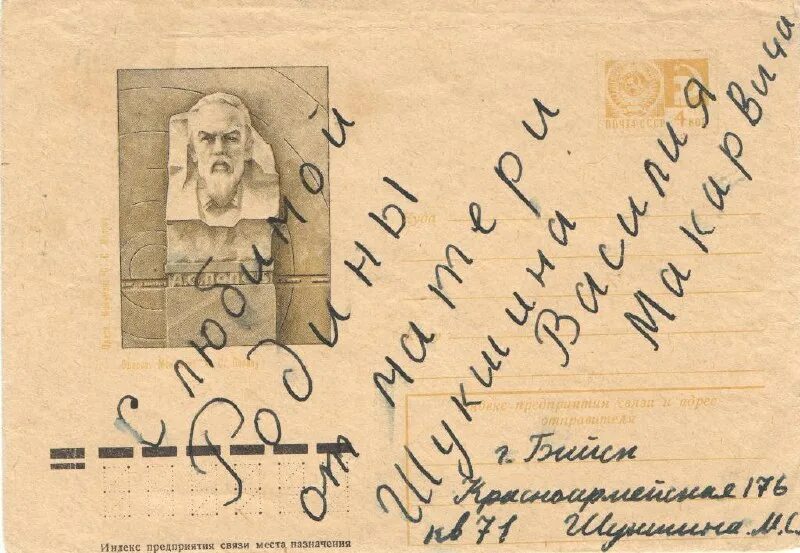 С любимой
Родины
от матери
Шукшина
Василия
Макарвича
ПОЧТА СССР
4 КОП
Куда
А.С.ПОПОВ
Индекс предприятия связи и адрес
отправителя
г. Бийск
Красноармейская 176
кв 71 Шукшина М.С.
Индекс предприятия связи места назначения